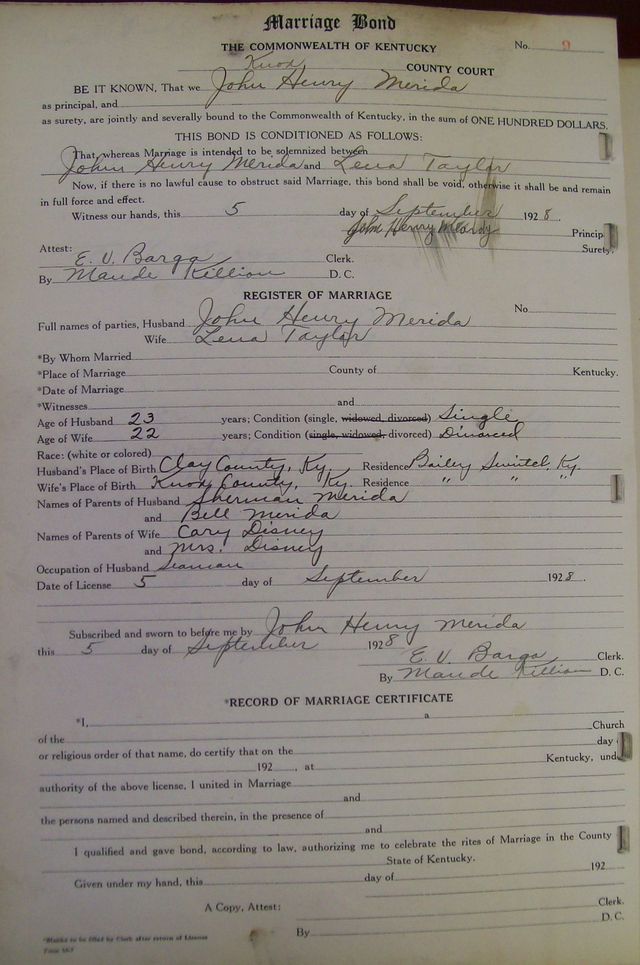 Marriage Bond
THE COMMONWEALTH OF KENTUCKY No. 9
Knox COUNTY COURT
BE IT KNOWN, That we John Henry Merida
as principal, and
as surety, are jointly and severally bound to the Commonwealth of Kentucky, in the sum of ONE HUNDRED DOLLARS.
THIS BOND IS CONDITIONED AS FOLLOWS:
That, whereas Marriage is intended to be solemnized between
John Henry Merida and Lena Taylor
Now, if there is no lawful cause to obstruct said Marriage, this bond shall be void, otherwise it shall be and remain
in full force and effect.
Witness our hands, this 5 day of September 1928.
John Henry Princip
Surety.
Attest:
E. V. Barga Clerk.
By Maude Killion D. C.
REGISTER OF MARRIAGE
No
Full names of parties, Husband John Henry Merida
Wife Lena Taylor
*By Whom Married
*Place of Marriage County of Kentucky.
*Date of Marriage
*Witnesses and
Age of Husband 23 years; Condition (single, widowed, divorced) Single
Age of Wife 22 years; Condition (single, widowed, divorced) Divorced
Race: (white or colored)
Husband's Place of Birth Clay County, Ky. Residence Bailey Switch, Ky.
Wife's Place of Birth Knox County, Ky. Residence " " "
Names of Parents of Husband Sherman Merida
and Bell Merida
Names of Parents of Wife Cary Disney
and Mrs. Disney
Occupation of Husband Seaman
Date of License 5 day of September 1928.
Subscribed and sworn to before me by John Henry Merida
this 5 day of September 1928
E. V. Barga Clerk.
By Maude Killion D. C.
*RECORD OF MARRIAGE CERTIFICATE
*I, a
Church
of the day
or religious order of that name, do certify that on the
192 , at Kentucky, unde
authority of the above license, I united in Marriage
and
the persons named and described therein, in the presence of
and
I qualified and gave bond, according to law, authorizing me to celebrate the rites of Marriage in the County
State of Kentucky.
Given under my hand, this day of 192
A Copy, Attest: Clerk.
By D. C.
*Blanks to be filled by Clerk after return of License